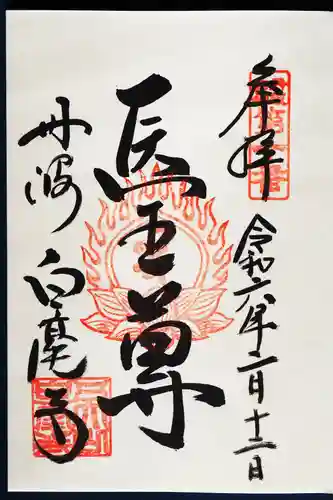 奉拝
令和六年二月十二日
医王尊
丹波
白毫寺